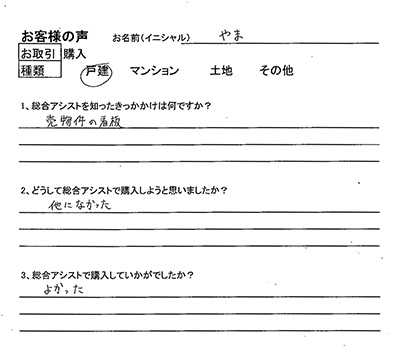 お客様の声 お名前(イニシャル) やま
お取引 購入
種類 戸建 マンション 土地 その他
1、総合アシストを知ったきっかかけは何ですか?
売物件の看板
2、どうして総合アシストで購入しようと思いましたか?
他になかった
3、総合アシストで購入していかがでしたか?
よかった